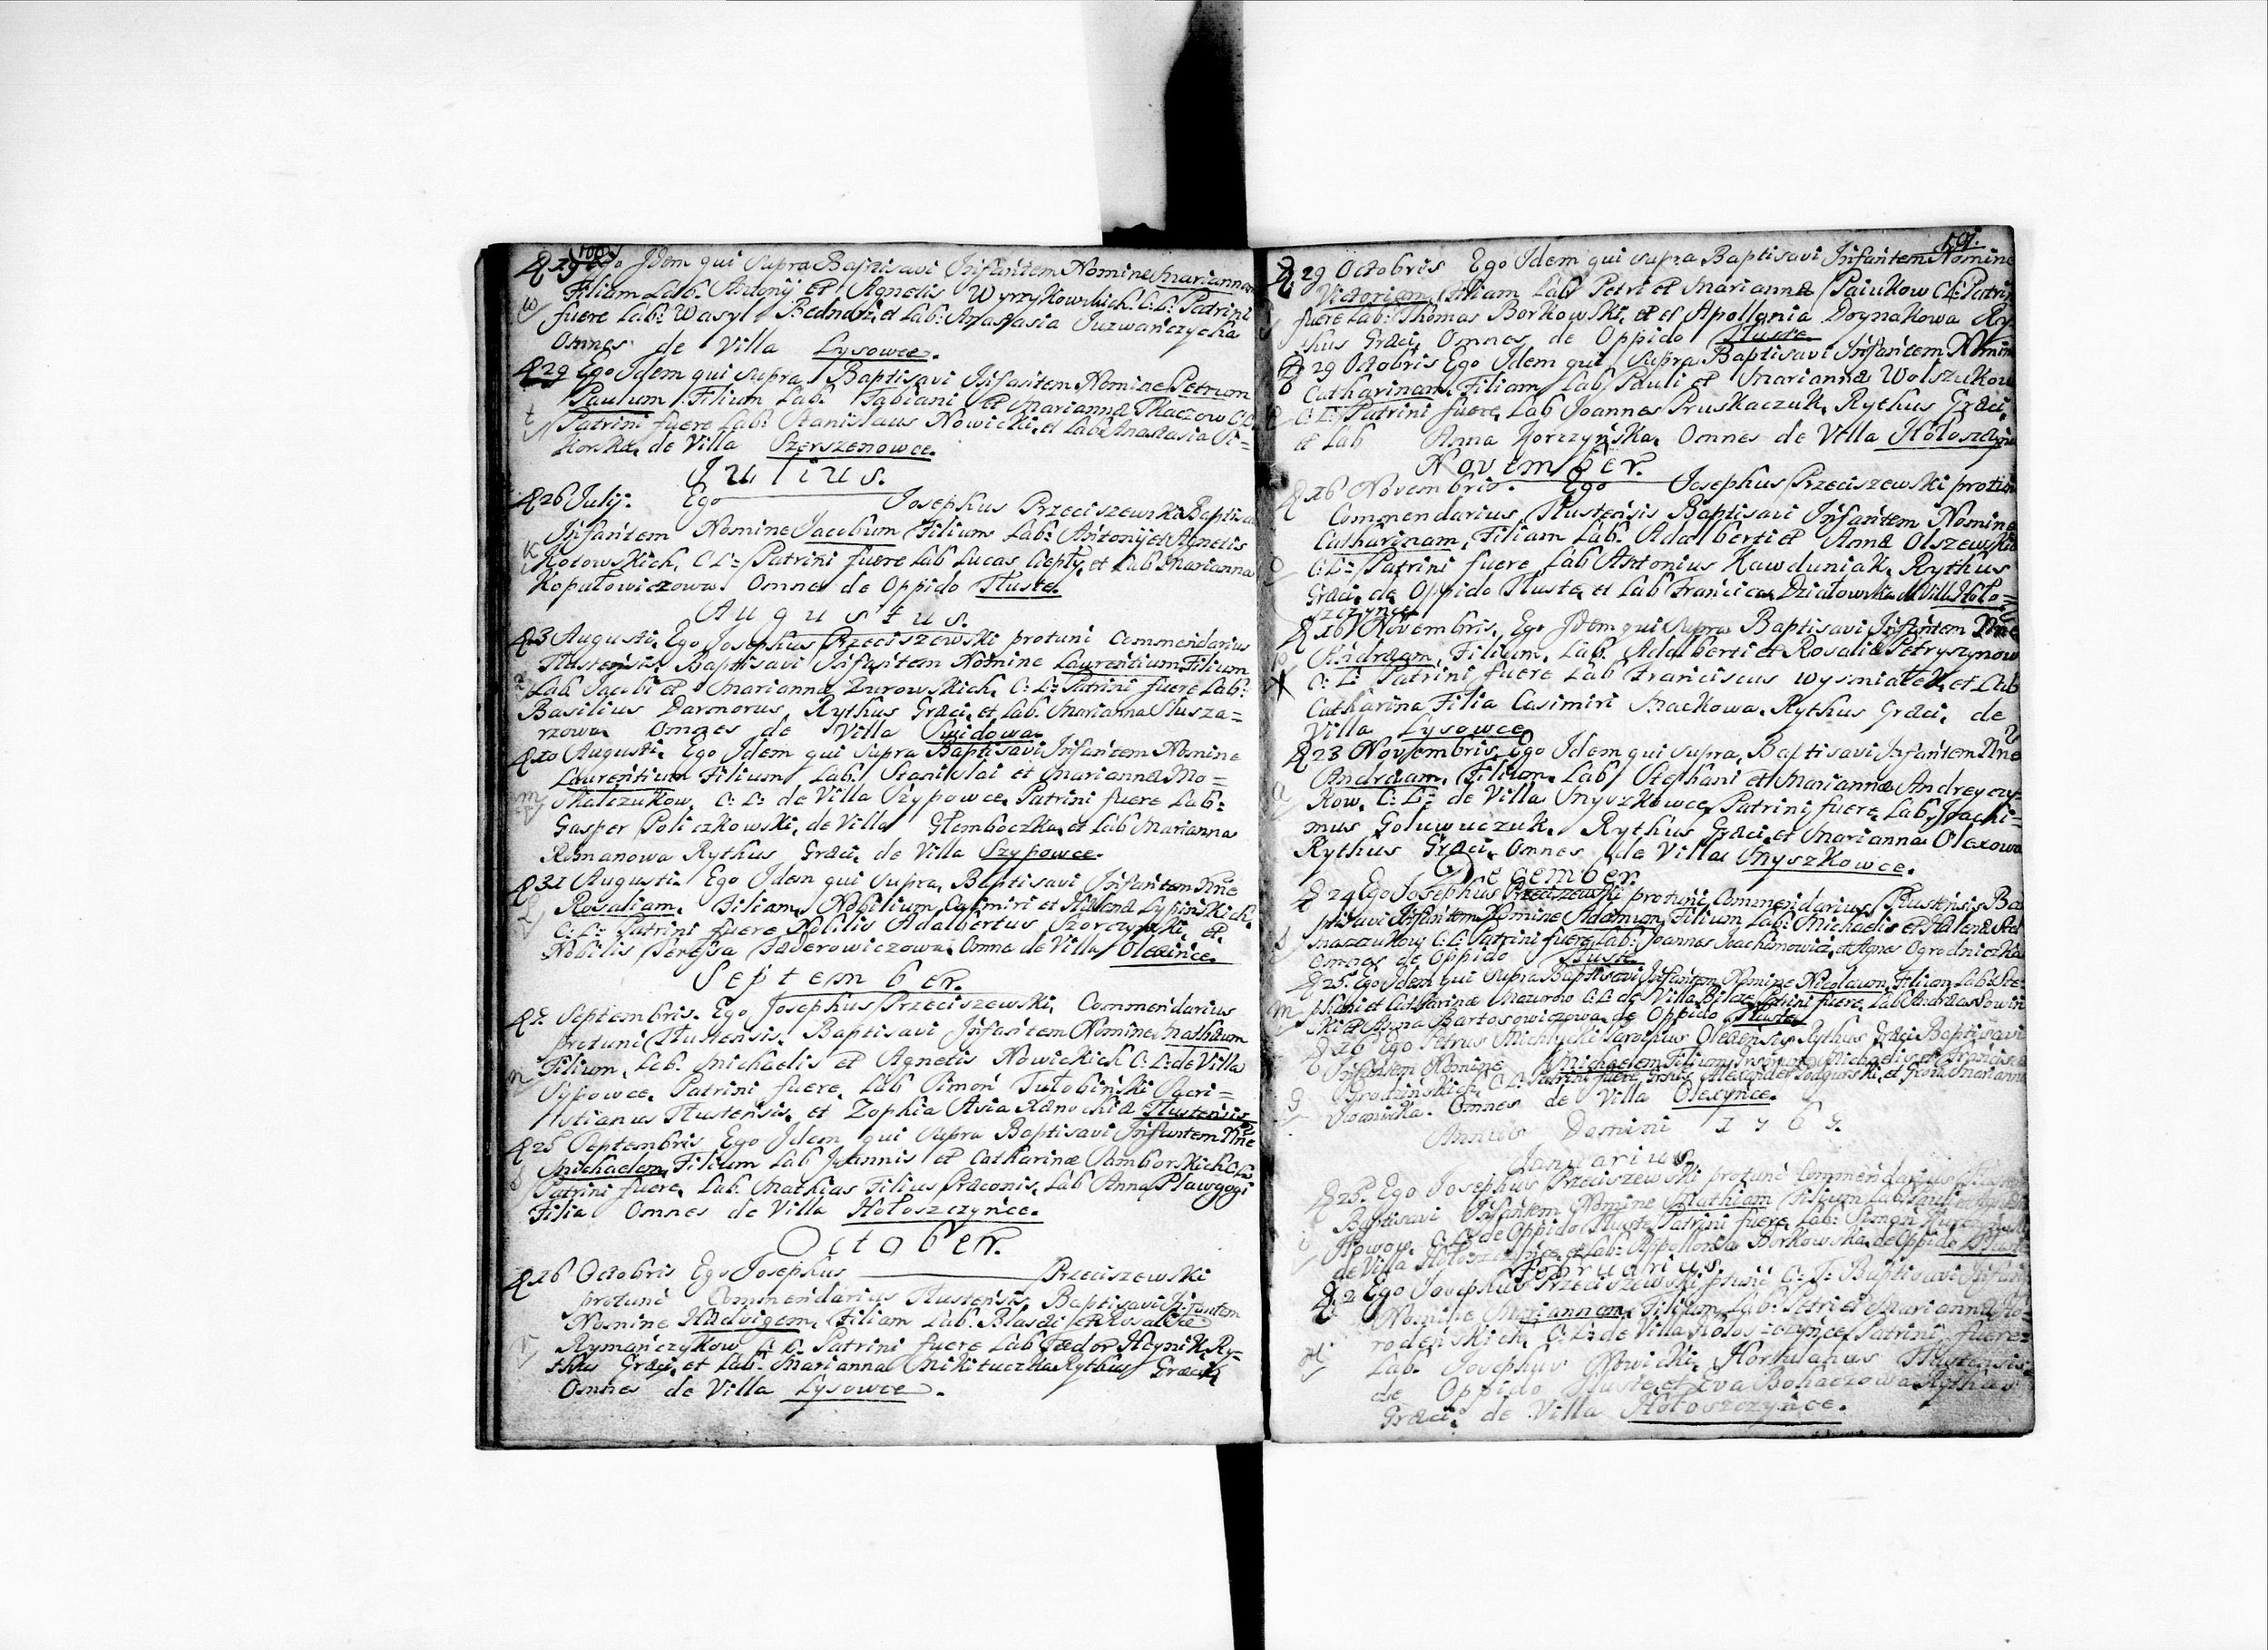 100
D 29 Ego Idem qui supra Baptisavi Infantem Nomine Mariannam
Filiam Lab: Antonij et Agnetis Wyrzykowskich. C: L: Patrini
w
fuere Lab: Wasyl Bednarz, et Lab: Anastasia Juzwańczycha
Omnes de Villa Lysowce.
D 29 Ego Idem qui supra Baptisavi Infantem Nomine Petrum
Paulum Filium Lab: Fabiani et Mariannæ Tkaczow C: L:
t
Patrini fuere Lab: Stanislaus Nowicki, et Lab: Anastasia
de Villa Szerszenowce.
Julius.
D 26 July: Ego Josephus Przeciszewski Baptisavi
Infantem Nomine Jacobum Filium Lab: Antonij et Agnetis
K
Kotowskich, C: L: Patrini fuere Lab Lucas Ciepły, et Lab Marianna
Kopułowiczowa Omnes de Oppido Tłuste.
Augustus.
D 3 Augusti, Ego Josephus Przeciszewski protunc Commendarius
Tłustensis Baptisavi Infantem Nomine Laurentium Filium
Lab. Jacobi et Mariannæ Zurowskich, C: L: Patrini fuere Lab:
Basilius Darmorus, Rythus Græci, et Lab. Marianna Slusza=
rzowa Omnes de Villa Swidowa.
D 10 Augusti, Ego Idem qui supra Baptisavi Infantem Nomine
Laurentium Filium Lab: Stanislai et Mariannæ Mo=
m
skalczukow, C: L: de Villa Szypowce, Patrini fuere Lab:
Gasper Policzkowski, de Villa Głemboczka, et Lab Marianna
Romanowa Rythus Græci, de Villa Szypowce.
D 31 Augusti. Ego Idem qui supra, Baptisavi Infantem Nne
Rosaliam, Filiam, Nobilium Casimiri et Helenæ Lypinskich,
L
C: L: Patrini fuere Nobilis Adalbertus Szorczynski, et
Nobilis Teressa Faderowiczowa. Omnes de Villa Olexince.
September.
D 2. Septembris. Ego Josephus Przeciszewski, Commendarius
protunc Tłustensis. Baptisavi Infantem Nomine Mathæum
Filium, Lab. Michaelis et Agnetis Nowickich C: L: de Villa
n
Sypowce, Patrini fuere, Lab Simon Tułobinski
Tłustensis, et Zophia Tłustensis
D 25 Septembris Ego Idem qui supra Baptisavi Infantem Nne
Michaelem, Filium Lab Joannis et Catharinæ Samborskich C: L:
S
Patrini fuere, Lab. Mathias Filius Præconis, Lab Anna Plawgogi
Filia Omnes de Villa Hołoszczyńce.
October.
D 16 Octobris Ego Josephus Przeciszewski
protunc Commendarius Tłustensis Baptisavi Infantem
Nomine Hedvigem, Filiam Lab: Blasii et Rosaliæ
r
Rymańczykow C: L: Patrini fuere Lab Fædor Heynik, Ry-
thus Græci, et Lab: Marianna Mikituczka Rythus Græci,
Omnes de Villa Lysowce.
101.
D 29 Octobris Ego Idem qui supra Baptisavi Infantem Nomine
Victoriam Filiam Lab Petri et Mariannæ Paiukow C L: Patrini
fuere Lab: Thomas Borkowski, et Apollonia Doynakowa Ry-
thus Græci, Omnes de Oppido Tłuste.
D 29 Octobris Ego Idem qui supra Baptisavi Infantem Nomine
Catharinam, Filiam Lab Pauli et Mariannæ Wolszukow
C: L: Patrini fuere, Lab Joannes Pruskaczuk, Rythus Græci,
et Lab Anna Horczyńska, Omnes de Villa Hołoszczyńce
November.
D 16 Novembris. Ego Josephus Przeciszewski protunc
Commendarius Tłustensis Baptisavi Infantem Nomine
Catharinam, Filiam Lab: Adalberti et Annæ Olszewskich
O
C: L: Patrini fuere Lab Antonius Kawduniak, Rythus
Græci, de Oppido Tłuste, et Lab Francisca Działowska de Villa Hoło=
szczyńce
D 16 Novembris, Ego Idem qui supra Baptisavi Infantem Nne
Andræam, Filium, Lab. Adalberti et Rosaliæ Petryszynow
C: L: Patrini fuere Lab Franciscus Wysmiałek, et Lab
Catharina Filia Casimiri Mackowa, Rythus Græci, de
Villa Lysowce
D 23 Novembris, Ego Idem qui supra, Baptisavi Infantem Nne
Andræam, Filium, Lab Stephani et Mariannæ Andreyczy-
a
kow, C: L: de Villa Myszkowce, Patrini fuere, Lab, Joachi=
mus Goluwuczuk, Rythus Græci, et Marianna Olexowa
Rythus Græci, Omnes de Villa Myszkowce.
December.
D 24 Ego Josephus Przeciszewski protunc Commendarius Tłustensis Ba
ptisavi Infantem Nomine Adamum, Filium Lab: Michaelis et Helenæ
C: L: Patrini fuere, Lab: Joannes Joachimowicz, et Agnes Ogrodniczka
Omnes de Oppido Tłuste
D 25. Ego Idem qui supra Baptisavi Infantem Nomine Nicolaum, Filium Lab: Ste-
m
phani et Catharinæ Mazurow C: L: de Villa Bilcze, Patrini fuere, Lab Andreas Sowin
ski et Anna Bartosowiczowa, de Oppido Tłuste
D 26 Ego Petrus Michlycki Parochus Olexensis Rythus Græci Baptisavi
Infantem Nomine Michaelem Filium Michaelis et Franciscæ
g
Grodzińskich, C: L: Patrini fuere, Alexander Podgurski, et Marianna
Omnes de Villa Olexynce.
Annus Domini 1769.
Januarius
D 25. Ego Josephus Przeciszewski protunc Commendarius
Baptisavi Infantem Nomine Mathiam Filium Lab:
C: L: de Oppido Tłuste, Patrini fuere, Lab: Simon
de Villa Hołoszczyńce, et Lab: Appollonia Borkowska, de Oppido Tłuste
Februarius.
D 2 Ego Josephus Przeciszewski ptunc C: T: Baptisavi Infan
Nomine Mariannam, Filiam, Lab: Petri et Mariannæ Ho-
rodeńskich, C: L: de Villa Hołoszczyńce, Patrini fuere
H
Lab: Josephus Nowicki, Hortulanus Tłustensis
de Oppido Tłuste, et Eva Bohaczowa Rythus
Græci, de Villa Hołoszczyńce.